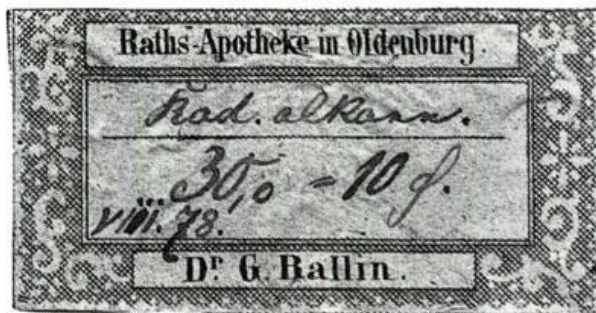 Raths-Apotheke in Oldenburg.
Rad. alkann.
30,0 = 10 ₰.
VIII. 78.
Dr. G. Ballin.